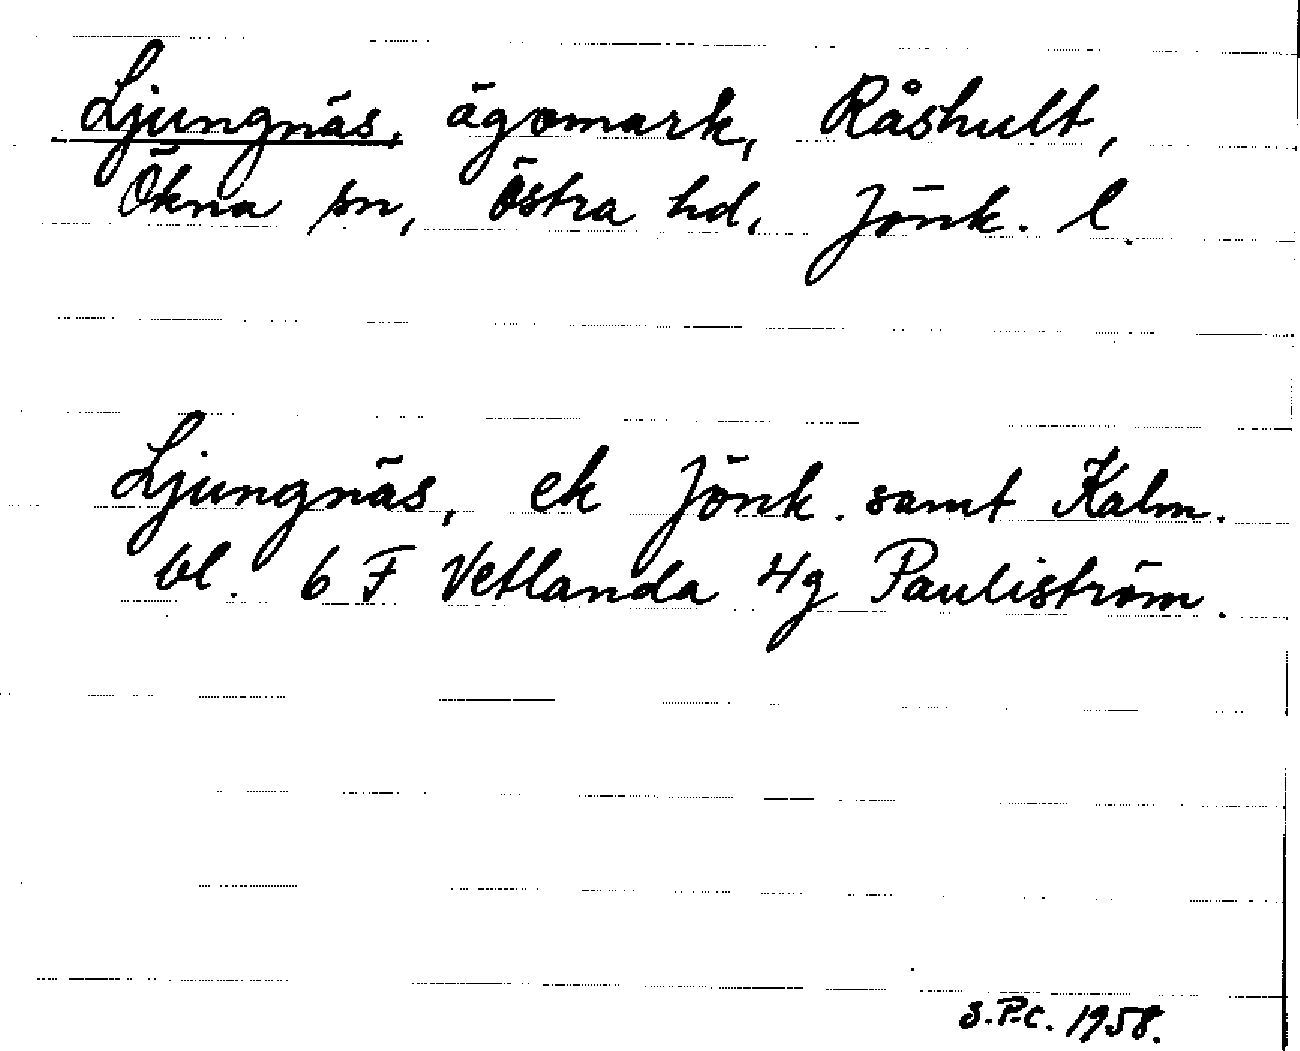 Ljungnäs, ägomark, Råshult,
Ökna sn, Östra hd, Jönk. l.
Ljungnäs, ek Jönk. samt Kalm.
bl. 6 F Vetlanda 4g Pauliström.
S.P.C. 1958.